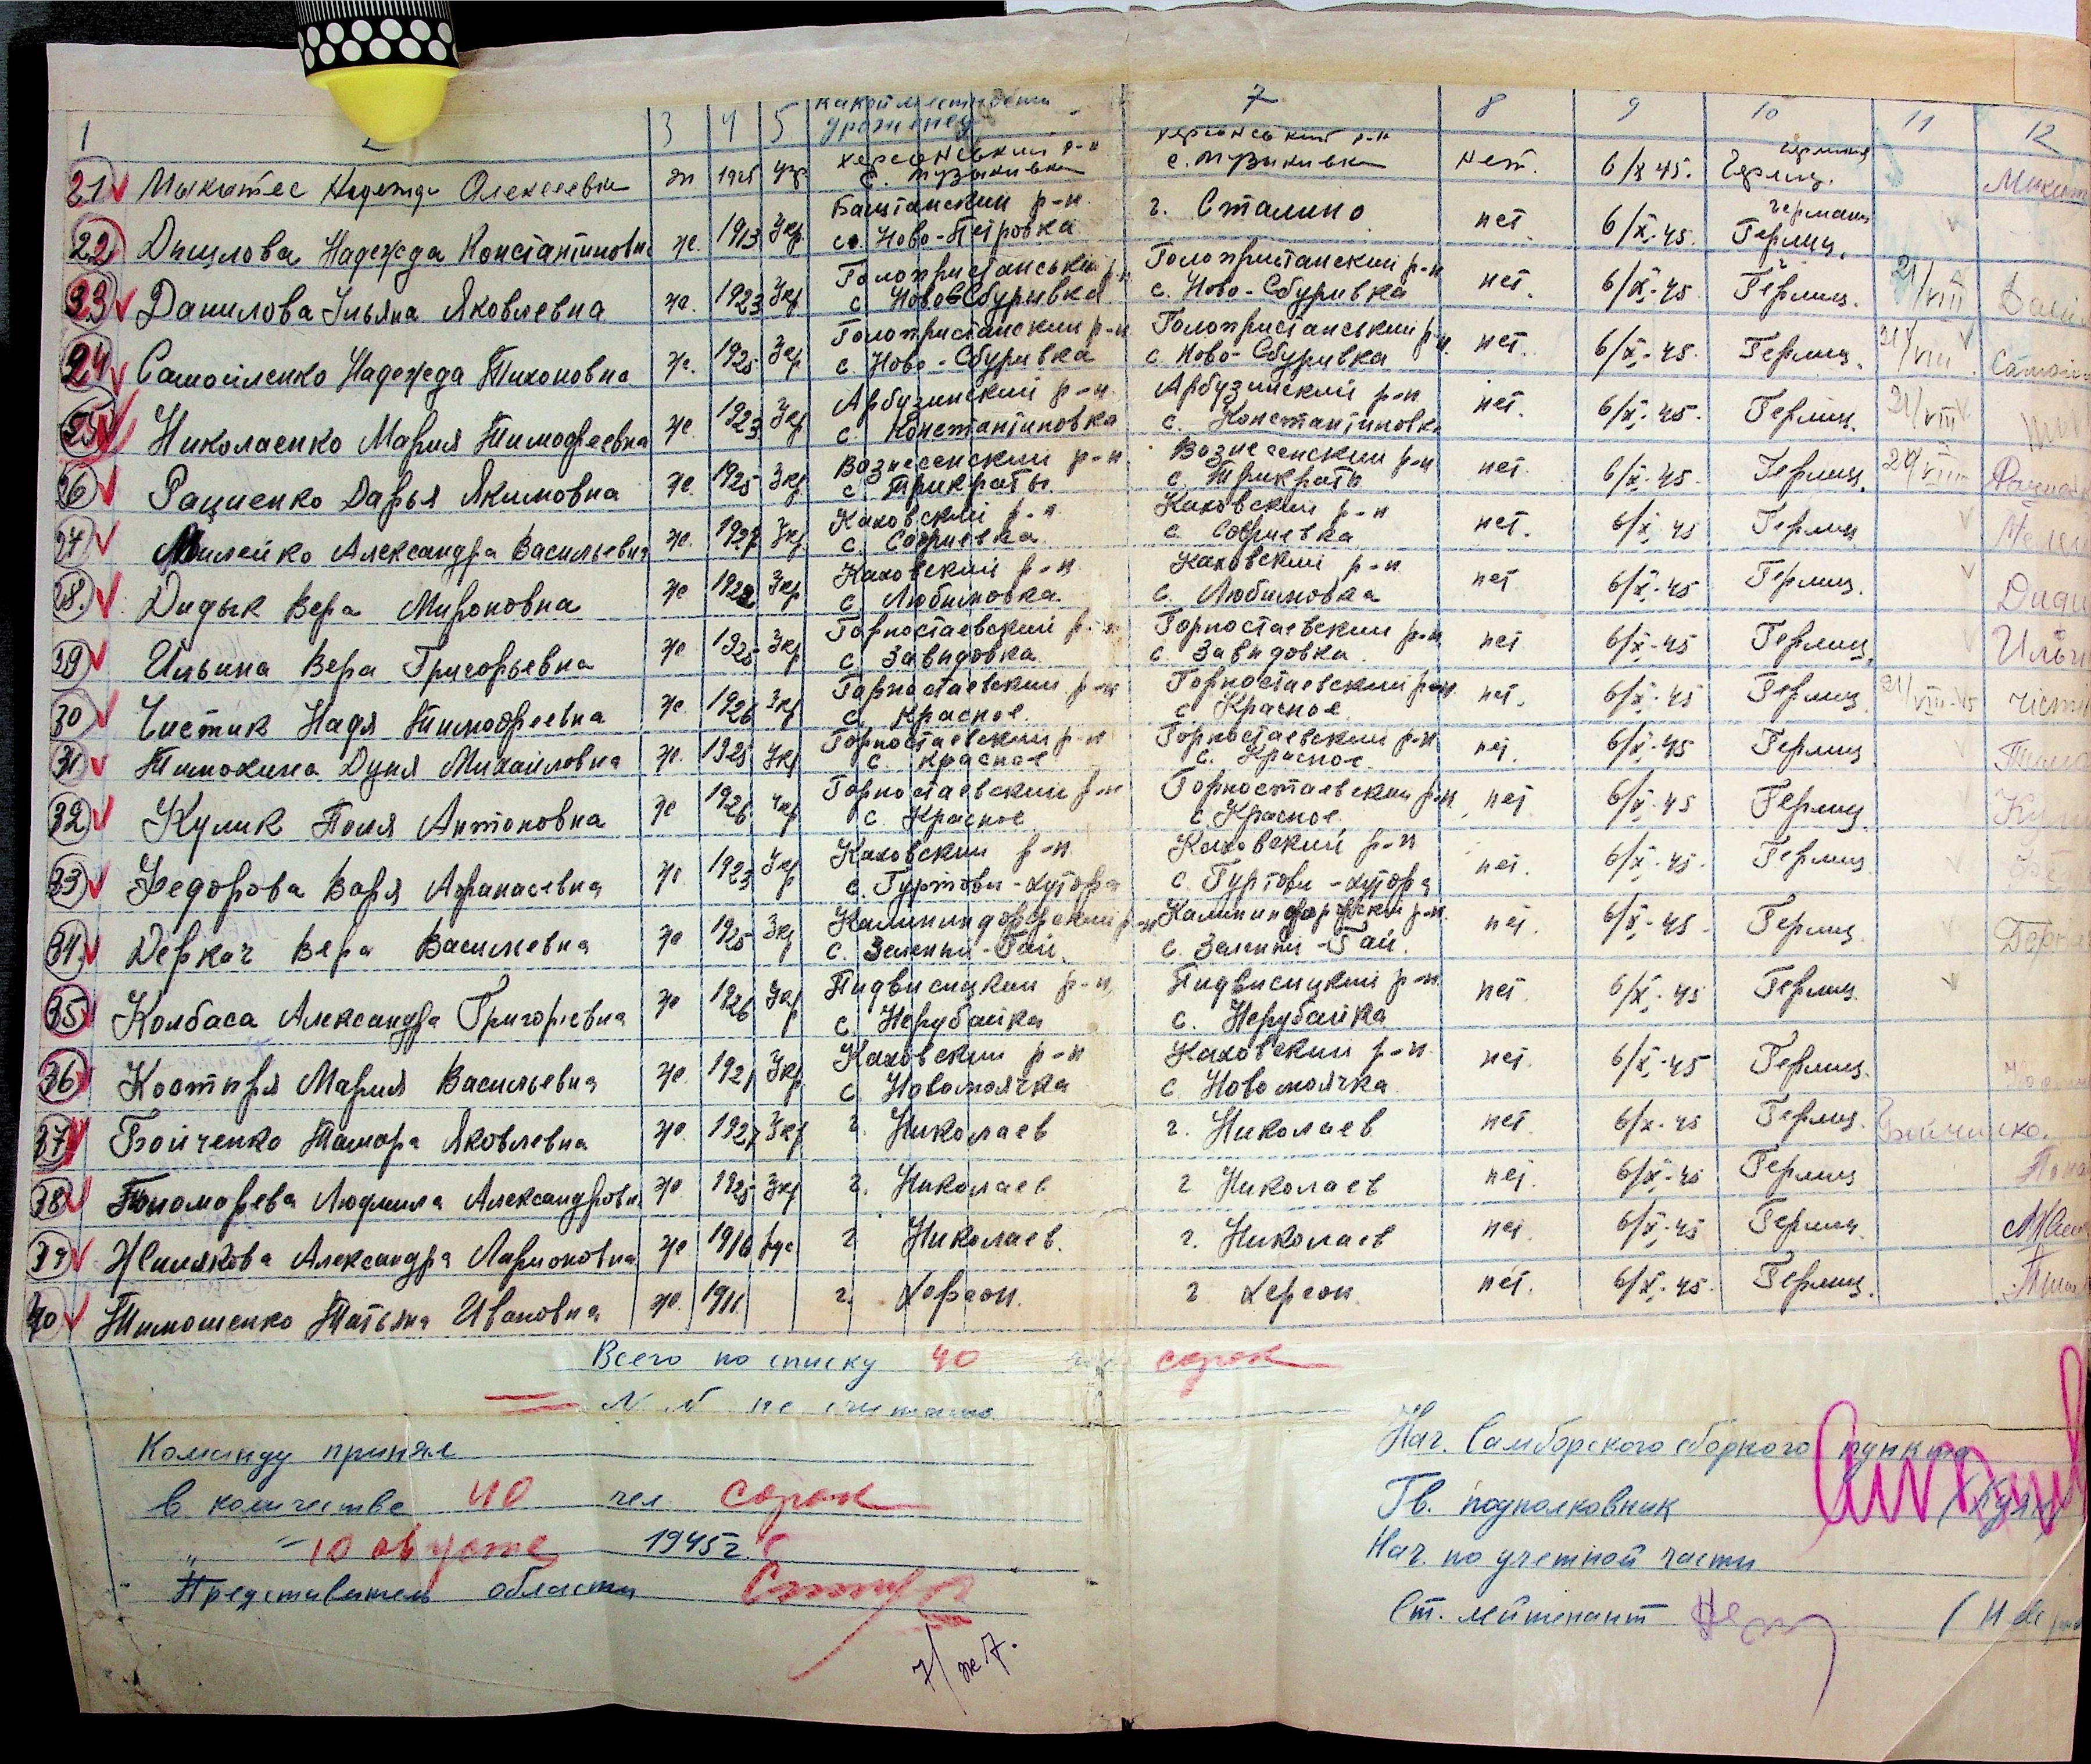 1 2 3 4 5 какой местности уроженец 7 8 9 10 11 12
21 Мыкитес Надежда Олексеевна ж 1925 укр Херсонський р-н с. Музыкивка Херсонський р-н с. Музыкивка нет. 6/X 45. Германия Герлиц.
22 Данилова Надежда Константиновна же. 1913 Укр Баштанский р-н. с. Ново-Петровка г. Сталино нет 6/X-45. Германия Герлиц.
23 Данилова Ульяна Яковлевна же. 1923 Укр Голопристанський р-н с. Ново-Сбурывка Голопристанский р-н с. Ново-Сбуривка нет. 6/X-45 Герлиц. 21/VIII
24 Самойленко Надежда Тихоновна же. 1925 Укр Голопристанский р-н с. Ново-Сбуривка Голопристанський р-н. с. Ново-Сбуривка нет. 6/X-45. Герлиц. 21/VIII
25 Николаенко Мария Тимофеевна же. 1923 Укр Арбузинский р-н с. Константиновка Арбузинский р-н с. Константиновка нет. 6/X-45. Герлиц. 21/VIII
26 Рациенко Дарья Якимовна же. 1925 Укр Вознесенский р-н. с. Трикраты. Вознесенский р-н с. Трикраты нет. 6/X-45. Герлиц.
27 Александра Васильевна же. Укр Каховский р-н с. Софиевка Каховский р-н с. Софиевка нет. 6/X 45 Герлиц
28. Дидык Вера Мироновна же Укр Каховский р-н с. Любимовка Каховский р-н с. Любимовка нет 6/X-45 Герлиц.
29 Ильина Вера Григорьевна же 1925 Укр Горностаевский р-н с. Завидовка Горностаевский р-н с. Завидовка нет 6/X-45 Герлиц.
30 Чистик Надя Тимофеевна же. 1926 Укр Горностаевский р-н с. Красное. Горностаевский р-н с. Красное нет. 6/X-45 Герлиц 21/VIII-45
31 Тимохина Дуня Михайловна же. 1925 Укр Горностаевский р-н с. Красное Горностаевский р-н с. Красное. нет. 6/X-45 Герлиц
32 Кулик Поля Антоновна же 1926 Укр Горностаевский р-н с. Красное Горностаевский р-н с. Красное нет 6/X-45 Герлиц.
33 Федорова Варя Афанасевна же. 1923 Укр Каховский р-н с. Гуртови-хутора Каховский р-н с. Гуртови-хутора нет. 6/X-45. Герлиц.
34. Деркач Вера Василевна же 1925 Укр Калининдорфский р-н с. Зелений-Гай. Калининдорфский р-н. с. Зелений-Гай. нет. 6/X-45. Герлиц.
35 Колбаса Александра Григорьевна же 1926 Укр Пидвисицкий р-н с. Нерубайка Пидвисицкий р-н с. Нерубайка нет. 6/X-45 Герлиц.
36 Костиря Мария Васильевна же. 1921 Укр Каховский р-н с. Новомаячка Каховский р-н. с. Новомаячка нет. 6/X-45 Герлиц.
37 Бойченко Тамара Яковлевна же. 1927 Укр г. Николаев г. Николаев нет. 6/X-45 Герлиц. Бойченко.
38 Пономарева Людмила Александровн же. 1925 Укр г. Николаев г Николаев нет. 6/X-45 Герлиц
39 Александра Ларионовна же 1916 рус г Николаев. г. Николаев нет. 6/X-45 Герлиц.
40 Тимошенко Татьяна Ивановна же. 1911. г. Херсон. г Херсон. нет. 6/X-45. Герлиц.
Всего по списку 40 сорок
Команду принял
в количестве 40 чел сорок
„ 10 августа 1945 г.
Представитель области
Нач. Самборского сборного пункта
Гв. подполковник
Нач. по учетной части
Ст. лейтенант